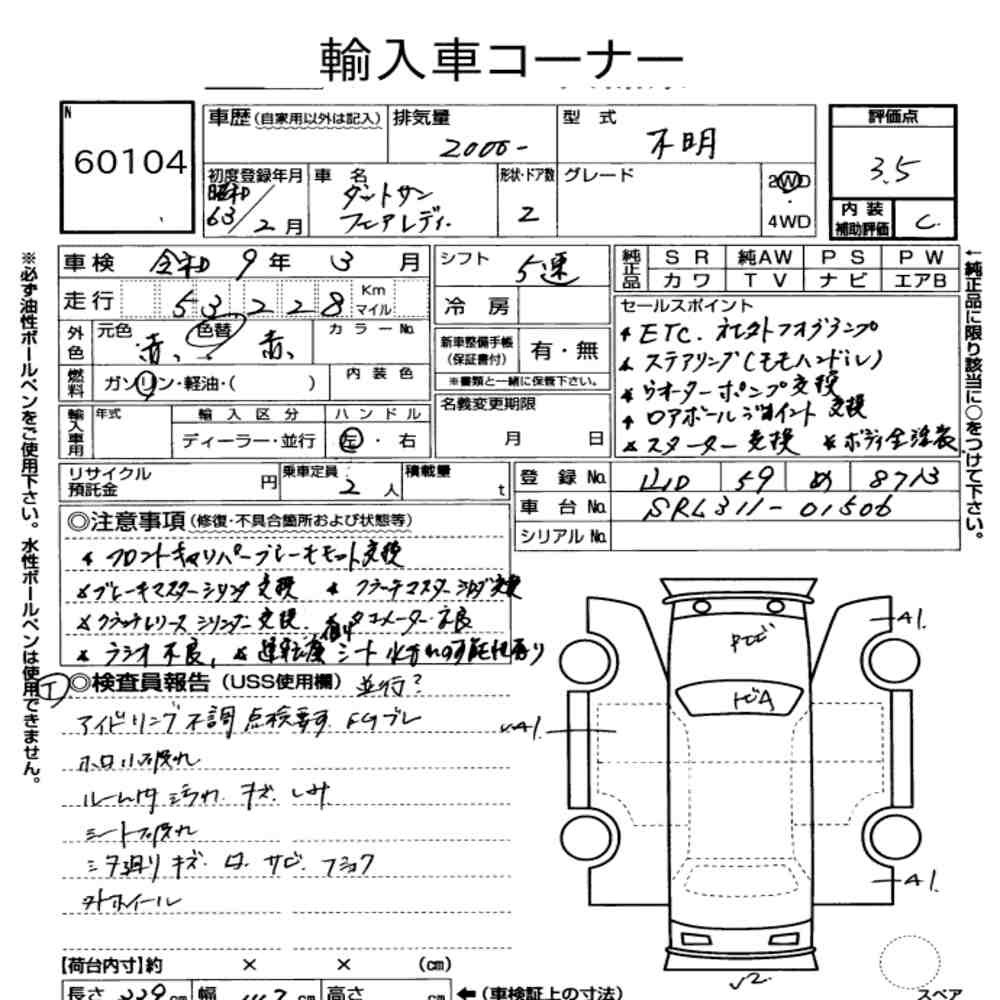 輸入車コーナー
N
60104
車歴 (自家用以外は記入)
排気量
2000-
型式
不明
評価点
3.5
初度登録年月
昭和
63/2月
車名
ダットサン
フェアレディ.
形状・ドア数
2
グレード
2WD
・
4WD
内装
補助評価
C
車検 令和 9年 3月
走行 53228 Km マイル
シフト 5速
冷房
純正品
SR 純AW PS PW
カワ TV ナビ エアB
外色
元色 赤、
色替 赤、
カラーNo.
燃料
ガソリン・軽油・( )
内装色
新車整備手帳
(保証書付)
有・無
※書類と一緒に保管下さい。
セールスポイント
* ETC. ネレクトフォグランプ
* ステアリング(モモハンドル)
* ウオーターポンプ交換
* ロアボールジョイント交換
* スターター交換 * ボディ全塗装
輸入車用
年式
輸入区分
ディーラー・並行
ハンドル
左・右
名義変更期限
月 日
リサイクル
預託金
円
乗車定員
2人
積載量
t
登録No. 山口 59 め 8713
車台No. SRL311-01506
シリアルNo.
◎注意事項(修復・不具合箇所および状態等)
* フロントキャリパーブレーキセット交換
* ブレーキマスターシリンダ交換 * クラッチマスターシリンダ交換
* クラッチレリースシリンダー交換. タコメーター不良
* ラジオ不良, * 運転席シート水ぬれの可能性有り
◎検査員報告(USS使用欄) 並行?
アイドリング不調 点検要す FGブレ
ホロ小破れ
ルーム内 汚れ キズ. しみ
シート破れ
シタ廻り キズ. 凹. サビ. フショク
外ホイール
【荷台内寸】約 × × (cm)
長さ 339 cm 幅 cm 高さ cm ←(車検証上の寸法)
※必ず油性ボールペンをご使用下さい。水性ボールペンは使用できません。
←純正品に限り該当に○をつけて下さい。
Pとビ
トビA
A1.
A1.
A1.
√2.
スペア